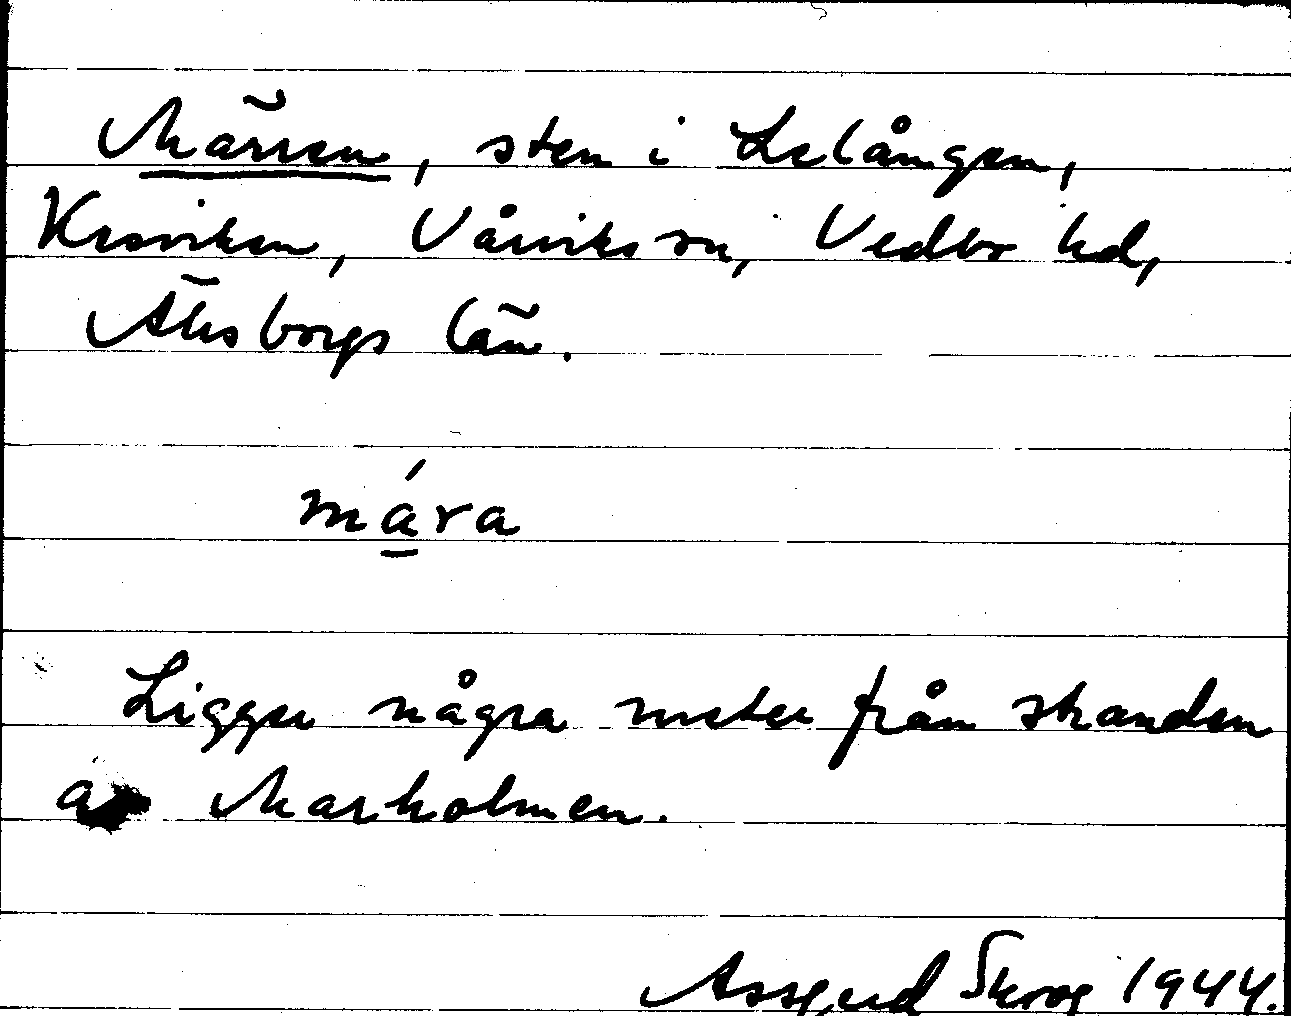 Märren, sten i Lelången,
Kroviken, Vårviks sn, Vedbo hd,
Älvsborgs län.
mára
Ligger några meter från stranden
av Marholmen.
Skrog 1944.